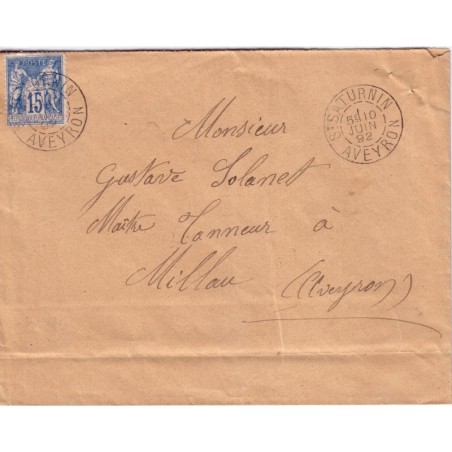 POSTE
15
NIN
AVEYRON
ST SATURNIN
10
JUIN
92
AVEYRON
Monsieur
Gustave Solanet
Maître Tanneur à
Millau (Aveyron)